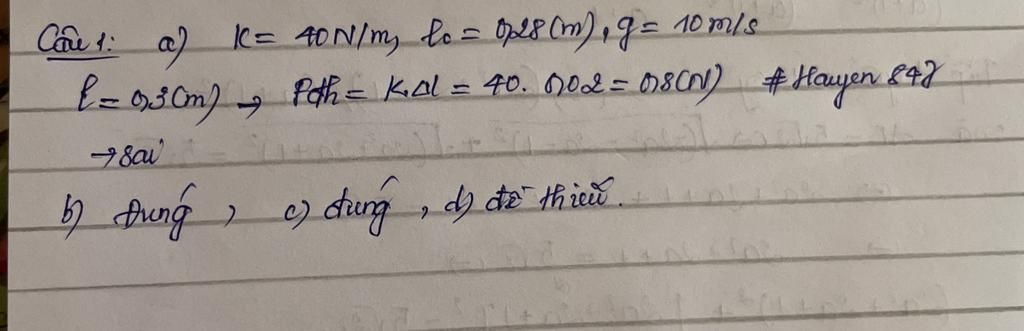 Câu 1: a) K = 40N/m, l₀ = 0,28(m), g = 10 m/s
l = 0,3(m) → Fđh = K.Δl = 40. 0,02 = 0,8(N) # Hauyen 847
→ sai
b) đúng, c) đúng, d) đề thiếu.